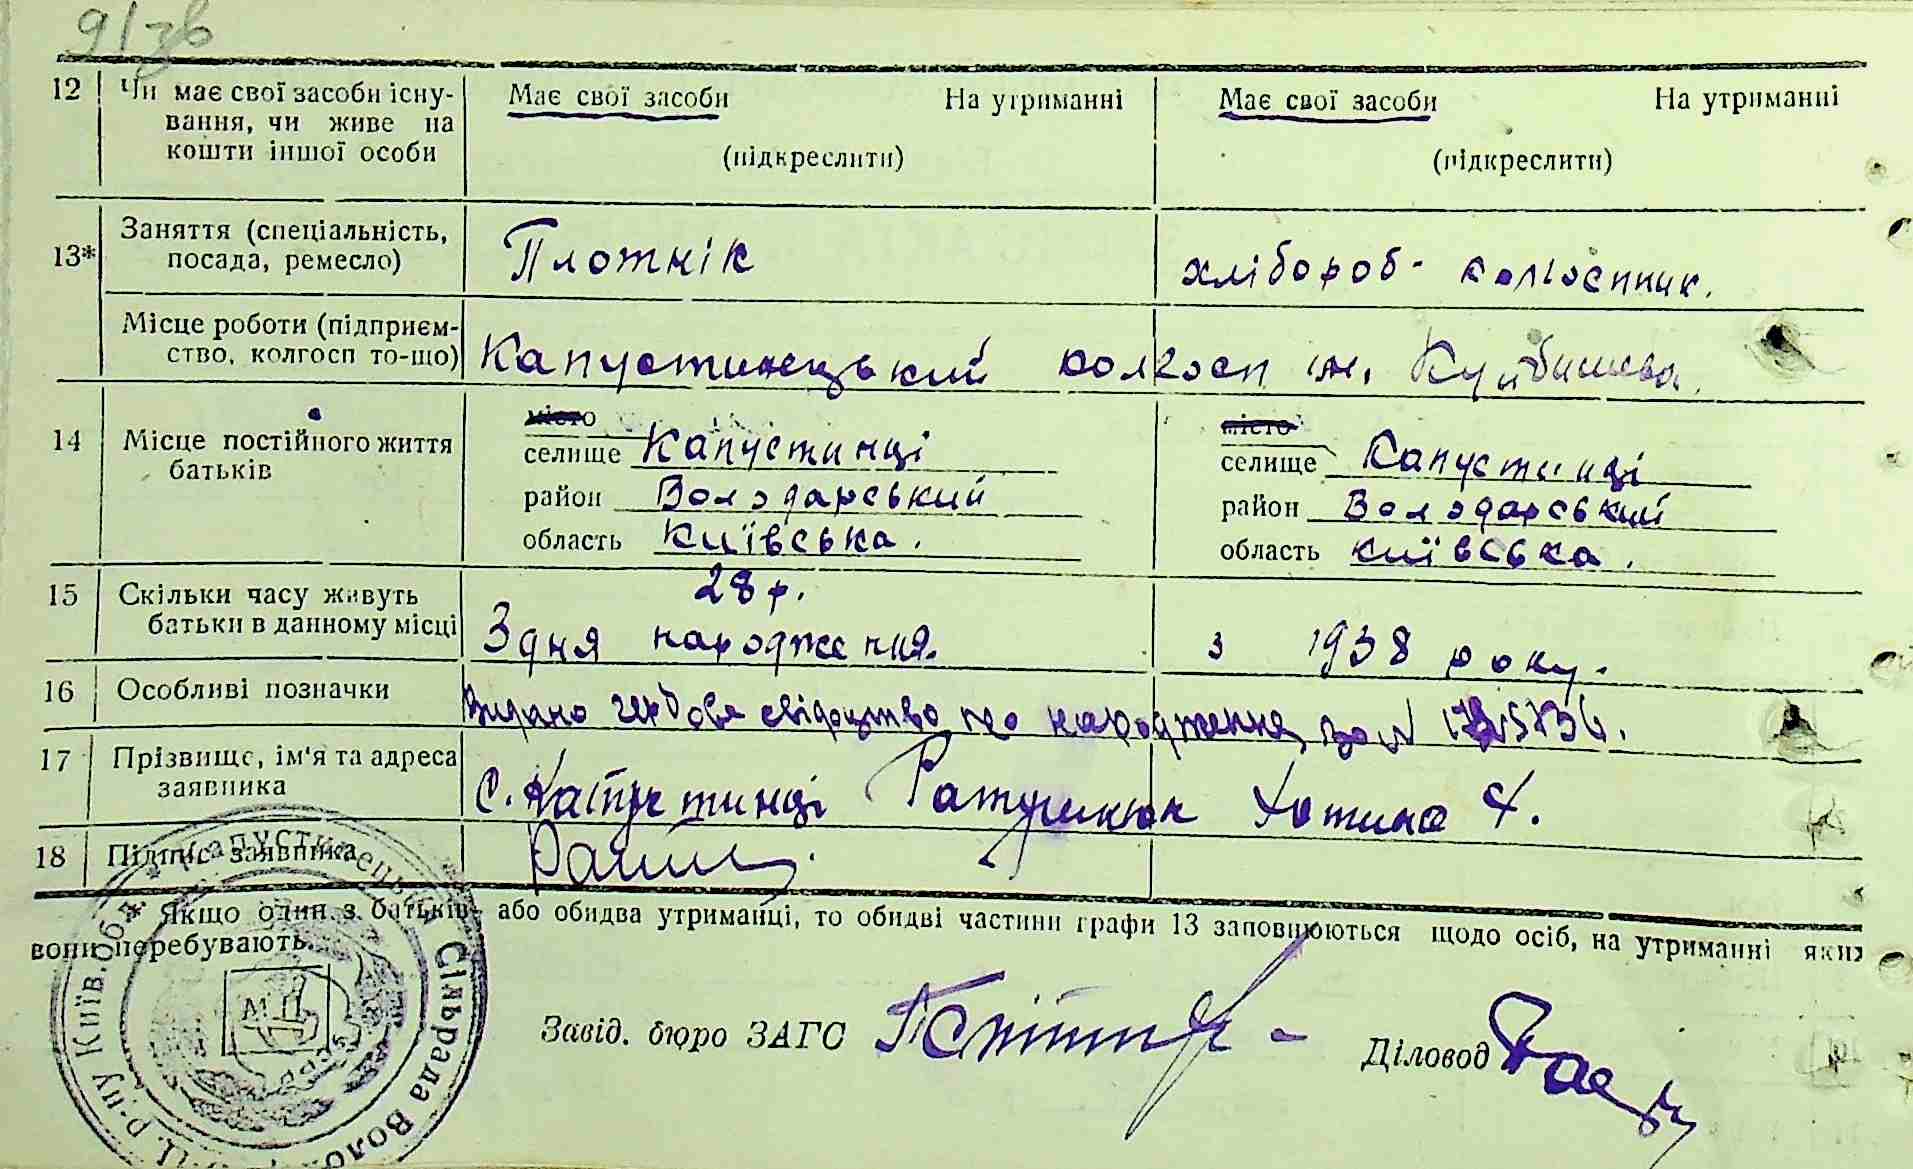 12 Чи має свої засоби існу- Має свої засоби На утриманні Має свої засоби На утриманні
вання, чи живе на
кошти іншої особи (підкреслити) (підкреслити)
13* Заняття (спеціальність, Плотнік хлібороб- колгоспник.
посада, ремесло)
Місце роботи (підприєм- Капустинецький колгосп ім. Куйбишева.
ство, колгосп то-що)
14 Місце постійного життя місто місто
батьків селище Капустинці селище Капустинці
район Володарський район Володарський
область Київська. область Київська.
28р.
15 Скільки часу живуть З дня народження. з 1938 року.
батьки в данному місці
16 Особливі позначки Видано гербове свідоцтво про народження за №
17 Прізвище, ім'я та адреса с. Капустинці
заявника
18 Підпис заявника
* Якщо один з батьків або обидва утриманці, то обидві частини графи 13 заповнюються щодо осіб, на утриманні яких
вони перебувають.
Завід. бюро ЗАГС Діловод
Капустинецька Сільрада Воло р-ну Київ. обл.